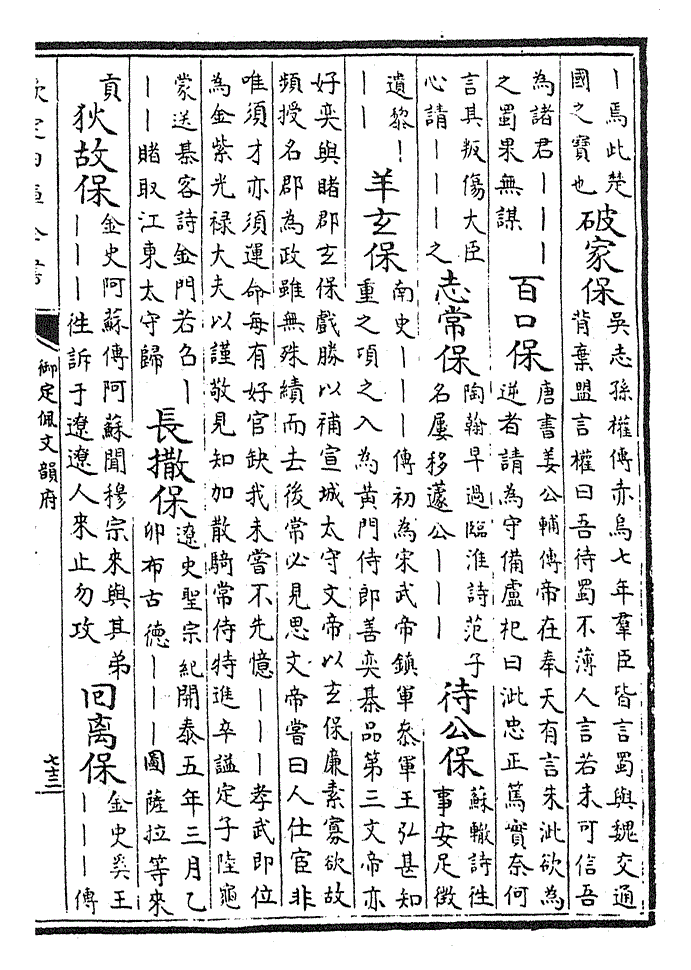 ｜焉此楚
國之寶也
破家保
吳志孫權傳赤烏七年羣臣皆言蜀與魏交通
背棄盟言權曰吾待蜀不薄人言若未可信吾
為諸君｜｜｜
之蜀果無謀
百口保
唐書姜公輔傳帝在奉天有言朱泚欲為
逆者請為守備盧杞曰泚忠正篤實奈何
言其叛傷大臣
心請｜｜｜之
志常保
陶翰早過臨淮詩范子
名屢移蘧公｜｜｜
待公保
蘇轍詩徃
事安足徴
遺黎｜
｜｜
羊玄保
南史｜｜｜傳初為宋武帝鎮軍叅軍王弘甚知
重之項之入為黄門侍郎善奕棊品第三文帝亦
好奕與賭郡玄保戲勝以補宣城太守文帝以玄保廉素寡欲故
頻授名郡為政雖無殊績而去後常必見思文帝嘗曰人仕宦非
唯須才亦須運命每有好官缺我未嘗不先憶｜｜｜孝武即位
為金紫光禄大夫以謹敬見知加散騎常侍特進卒謚定子陸龜
蒙送棊客詩金門若召｜
｜｜賭取江東太守歸
長撒保
遼史聖宗紀開泰五年三月乙
卯布古德｜｜｜圖薩拉等來
貢
狄故保
金史阿蘇傳阿蘇聞穆宗來與其弟
｜｜｜徃訴于遼遼人來止勿攻
回离保
金史奚王
｜｜｜傳
御定佩文韻府
七十三